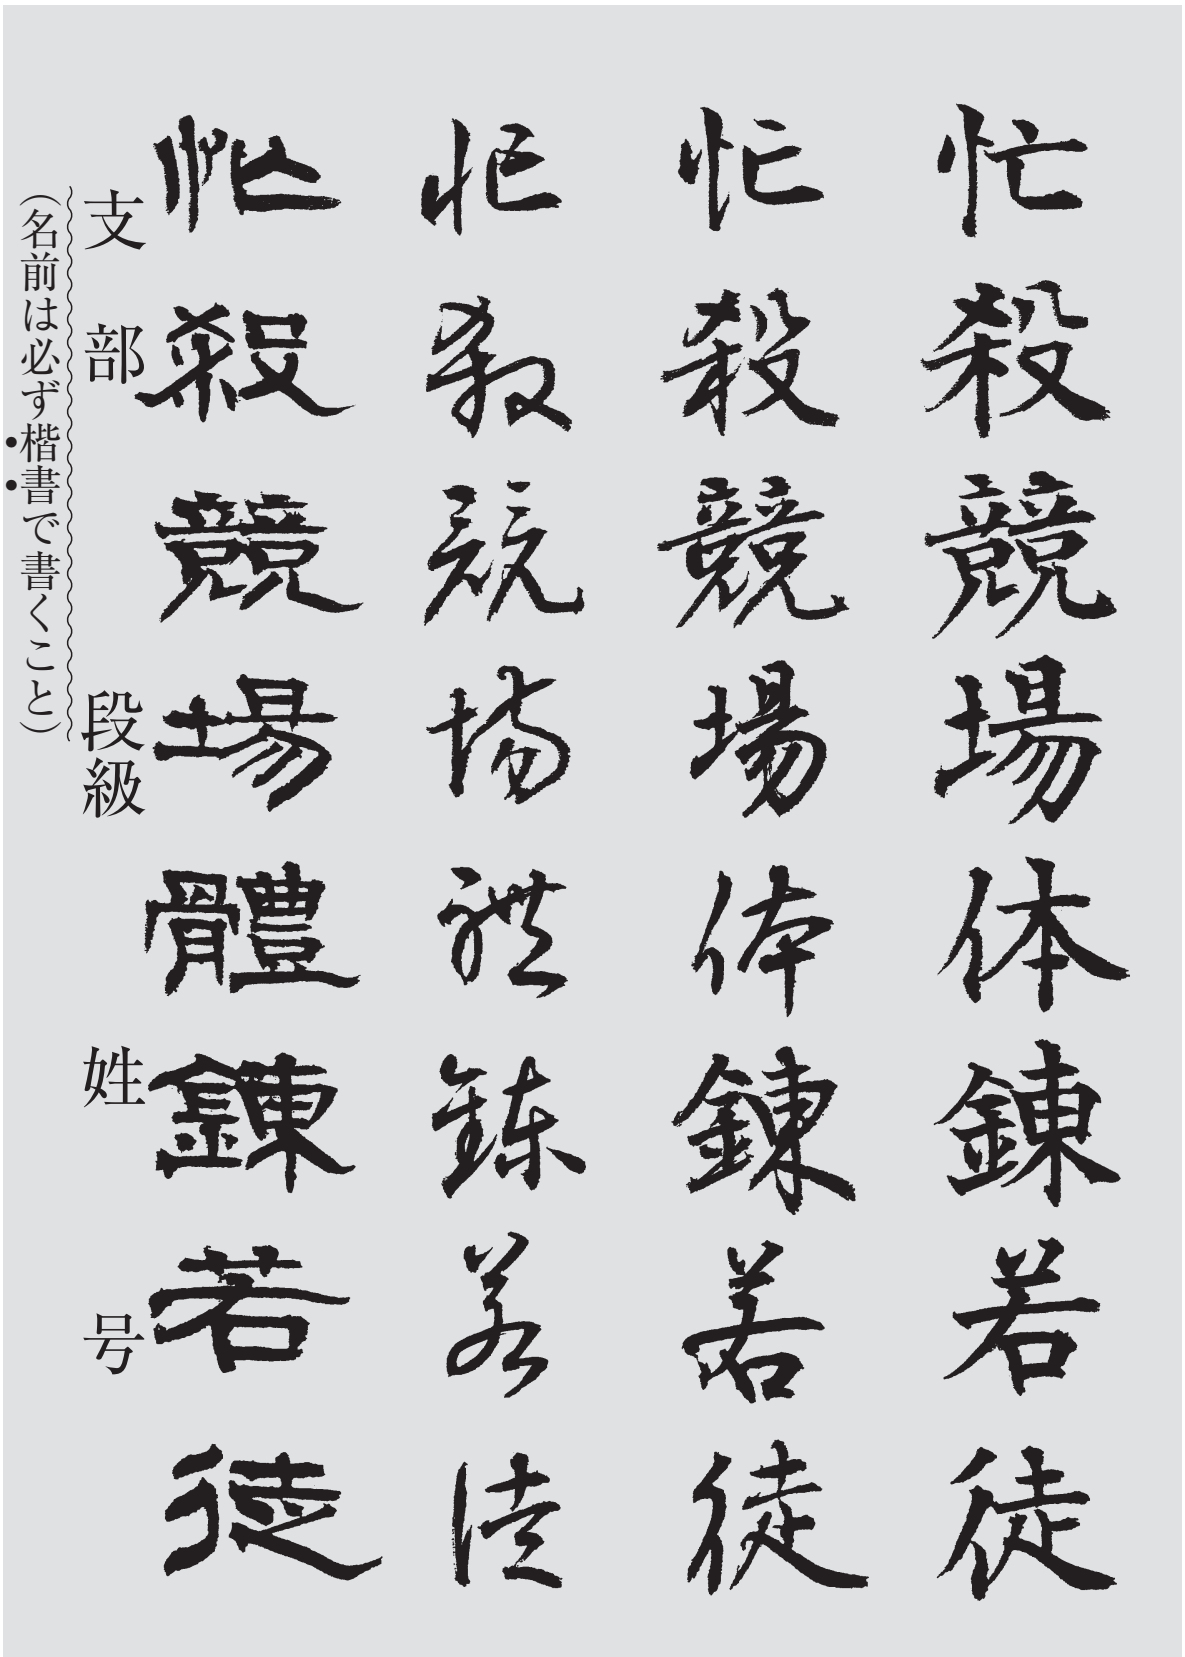 忙殺競場体錬若徒
忙殺競場体錬若徒
忙殺競場体錬若徒
忙殺競場體鍊若徒
支部 段級 姓 号
(名前は必ず楷書で書くこと)